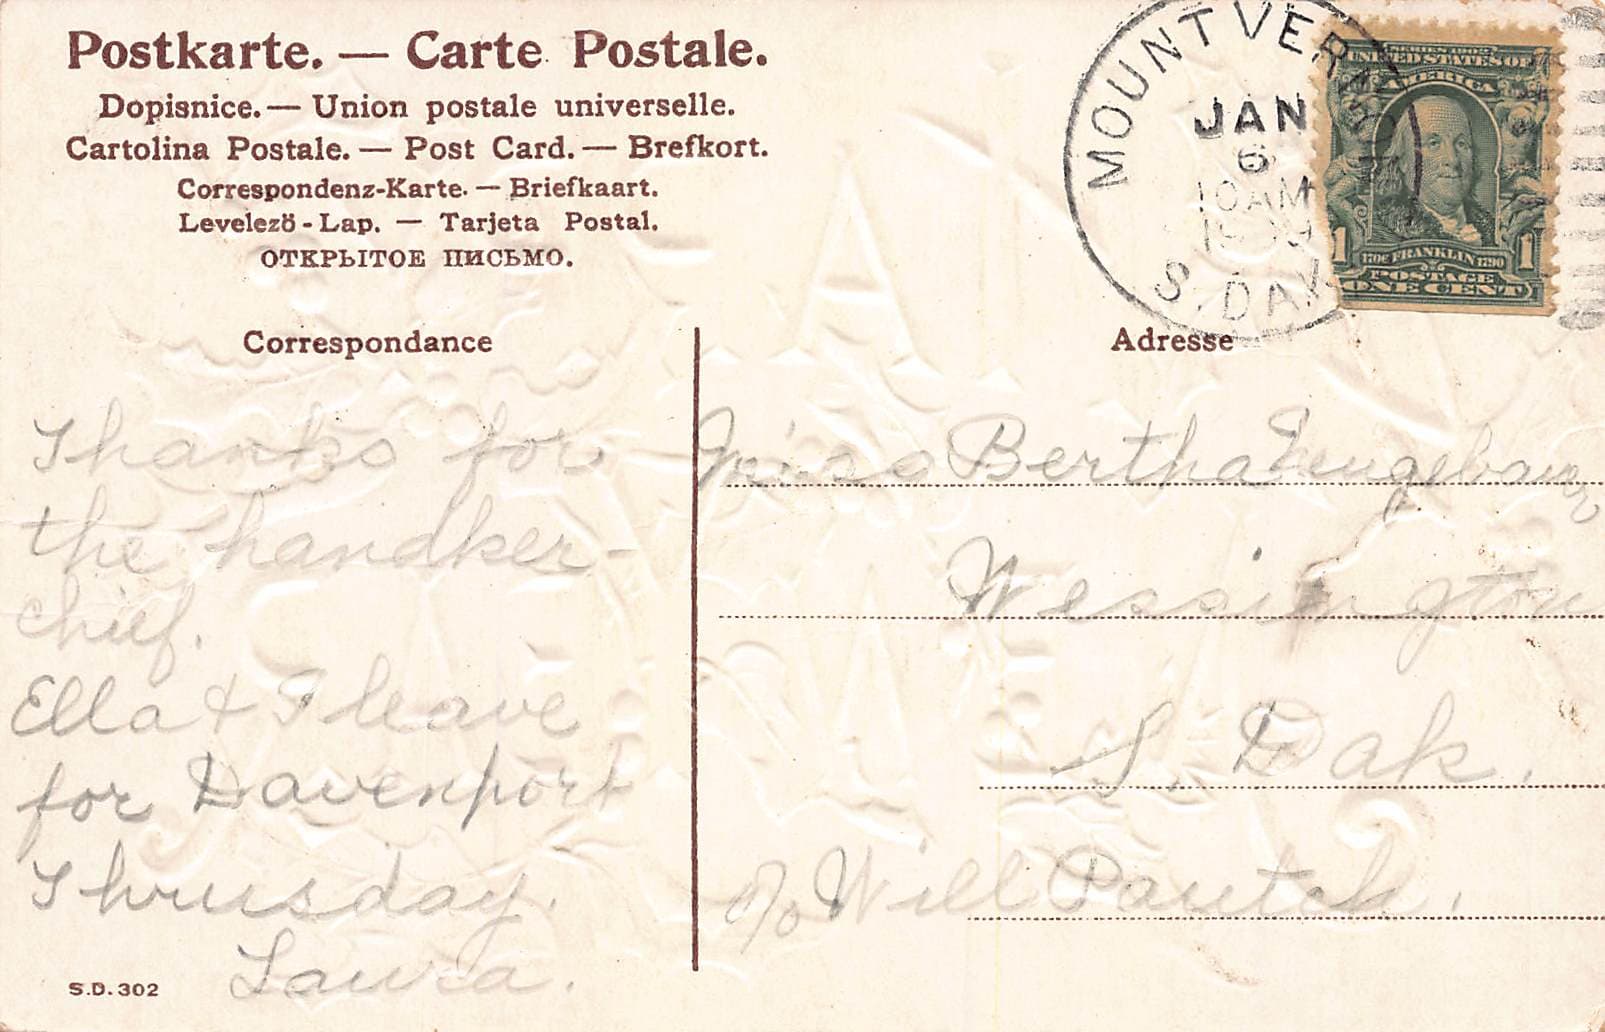 Postkarte. — Carte Postale.
Dopisnice. — Union postale universelle.
Cartolina Postale. — Post Card. — Brefkort.
Correspondenz-Karte. — Briefkaart.
Levelező - Lap. — Tarjeta Postal.
ОТКРЫТОЕ ПИСЬМО.
MOUNT VERNON
JAN
6
10 AM
S. DAK
SERIES 1902
UNITED STATES OF
AMERICA
1 1706 FRANKLIN 1790 1
POSTAGE
ONE CENT
Correspondance
Thanks for
the handker-
chief.
Ella & I leave
for Davenport
Thrusday.
Laura.
S.D. 302
Adresse
Miss Bertha
Wessington
S. Dak.
c/o Will